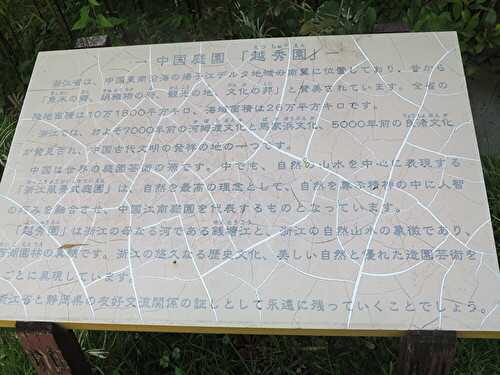 中国庭園「越秀園」
浙江省は、中国東南沿海の揚子江デルタ地域の南翼に位置しており、昔から
「魚米の郷、絹織物の府、観光の地、文化の邦」と賛美されています。全省の
陸地面積は10万1800平方キロ、海域面積は26万平方キロです。
浙江では、およそ7000年前の河姆渡文化と馬家浜文化、5000年前の良渚文化
が発見され、中国古代文明の発祥の地の一つです。
中国は世界の庭園芸術の源です。中でも、自然の山水を中心に表現する
「浙江風景式庭園」は、自然を最高の理念として、自然を尊ぶ精神の中に人智
の巧みを融合させ、中国江南庭園を代表するものとなっています。
「越秀園」は浙江の母なる河である銭塘江と、浙江の自然山水の象徴であり、
湖園林の真髄です。浙江の悠久なる歴史文化、美しい自然と優れた造園芸術を
ごとに具現しています。
浙江省と静岡県の友好交流関係の証しとして永遠に残っていくことでしょう。